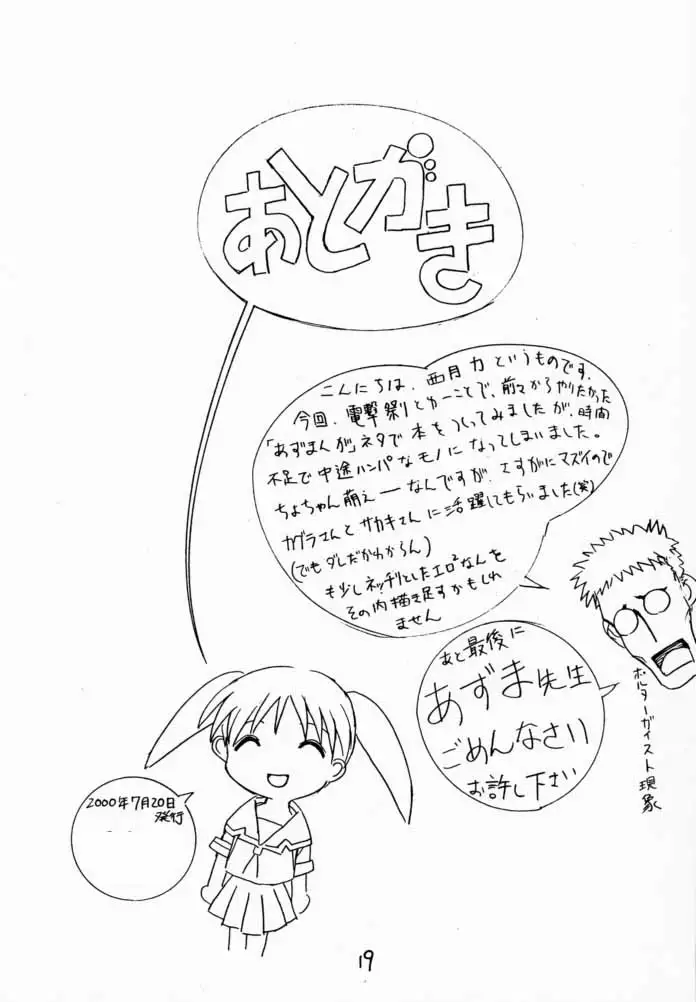 あとがき
こんにちは、西月力というものです。
今回、電撃祭りとゆーことで、前々からやりたかった
「あずまんが」ネタで本をつくってみましたが、時間
不足で中途ハンパなモノになってしまいました。
ちょちゃん萌えーなんですが、さすがにマズイので
カグラさんとサカキさんに活躍してもらいました(笑)
(でもダレだかわからん)
も少しネッチリとしたエロ²なんを
その内描き足すかもしれ
ません
あと最後に
あずま先生
ごめんなさい
お許し下さい
ポルターガイスト現象
2000年7月20日
発行
19